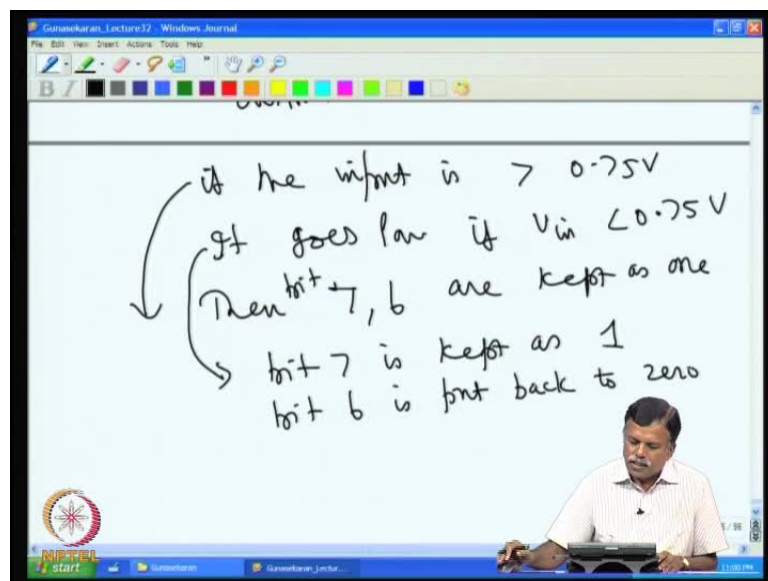 Gunasekaran_Lecture32 - Windows Journal
File Edit View Insert Actions Tools Help
B I
if the input is > 0.75V
It goes low if Vin < 0.75 V
Then bit 7, 6 are kept as one
bit 7 is kept as 1
bit 6 is put back to zero
NPTEL
start Gunasekaran Gunasekaran_Lectur...
/ 98
11:00 PM